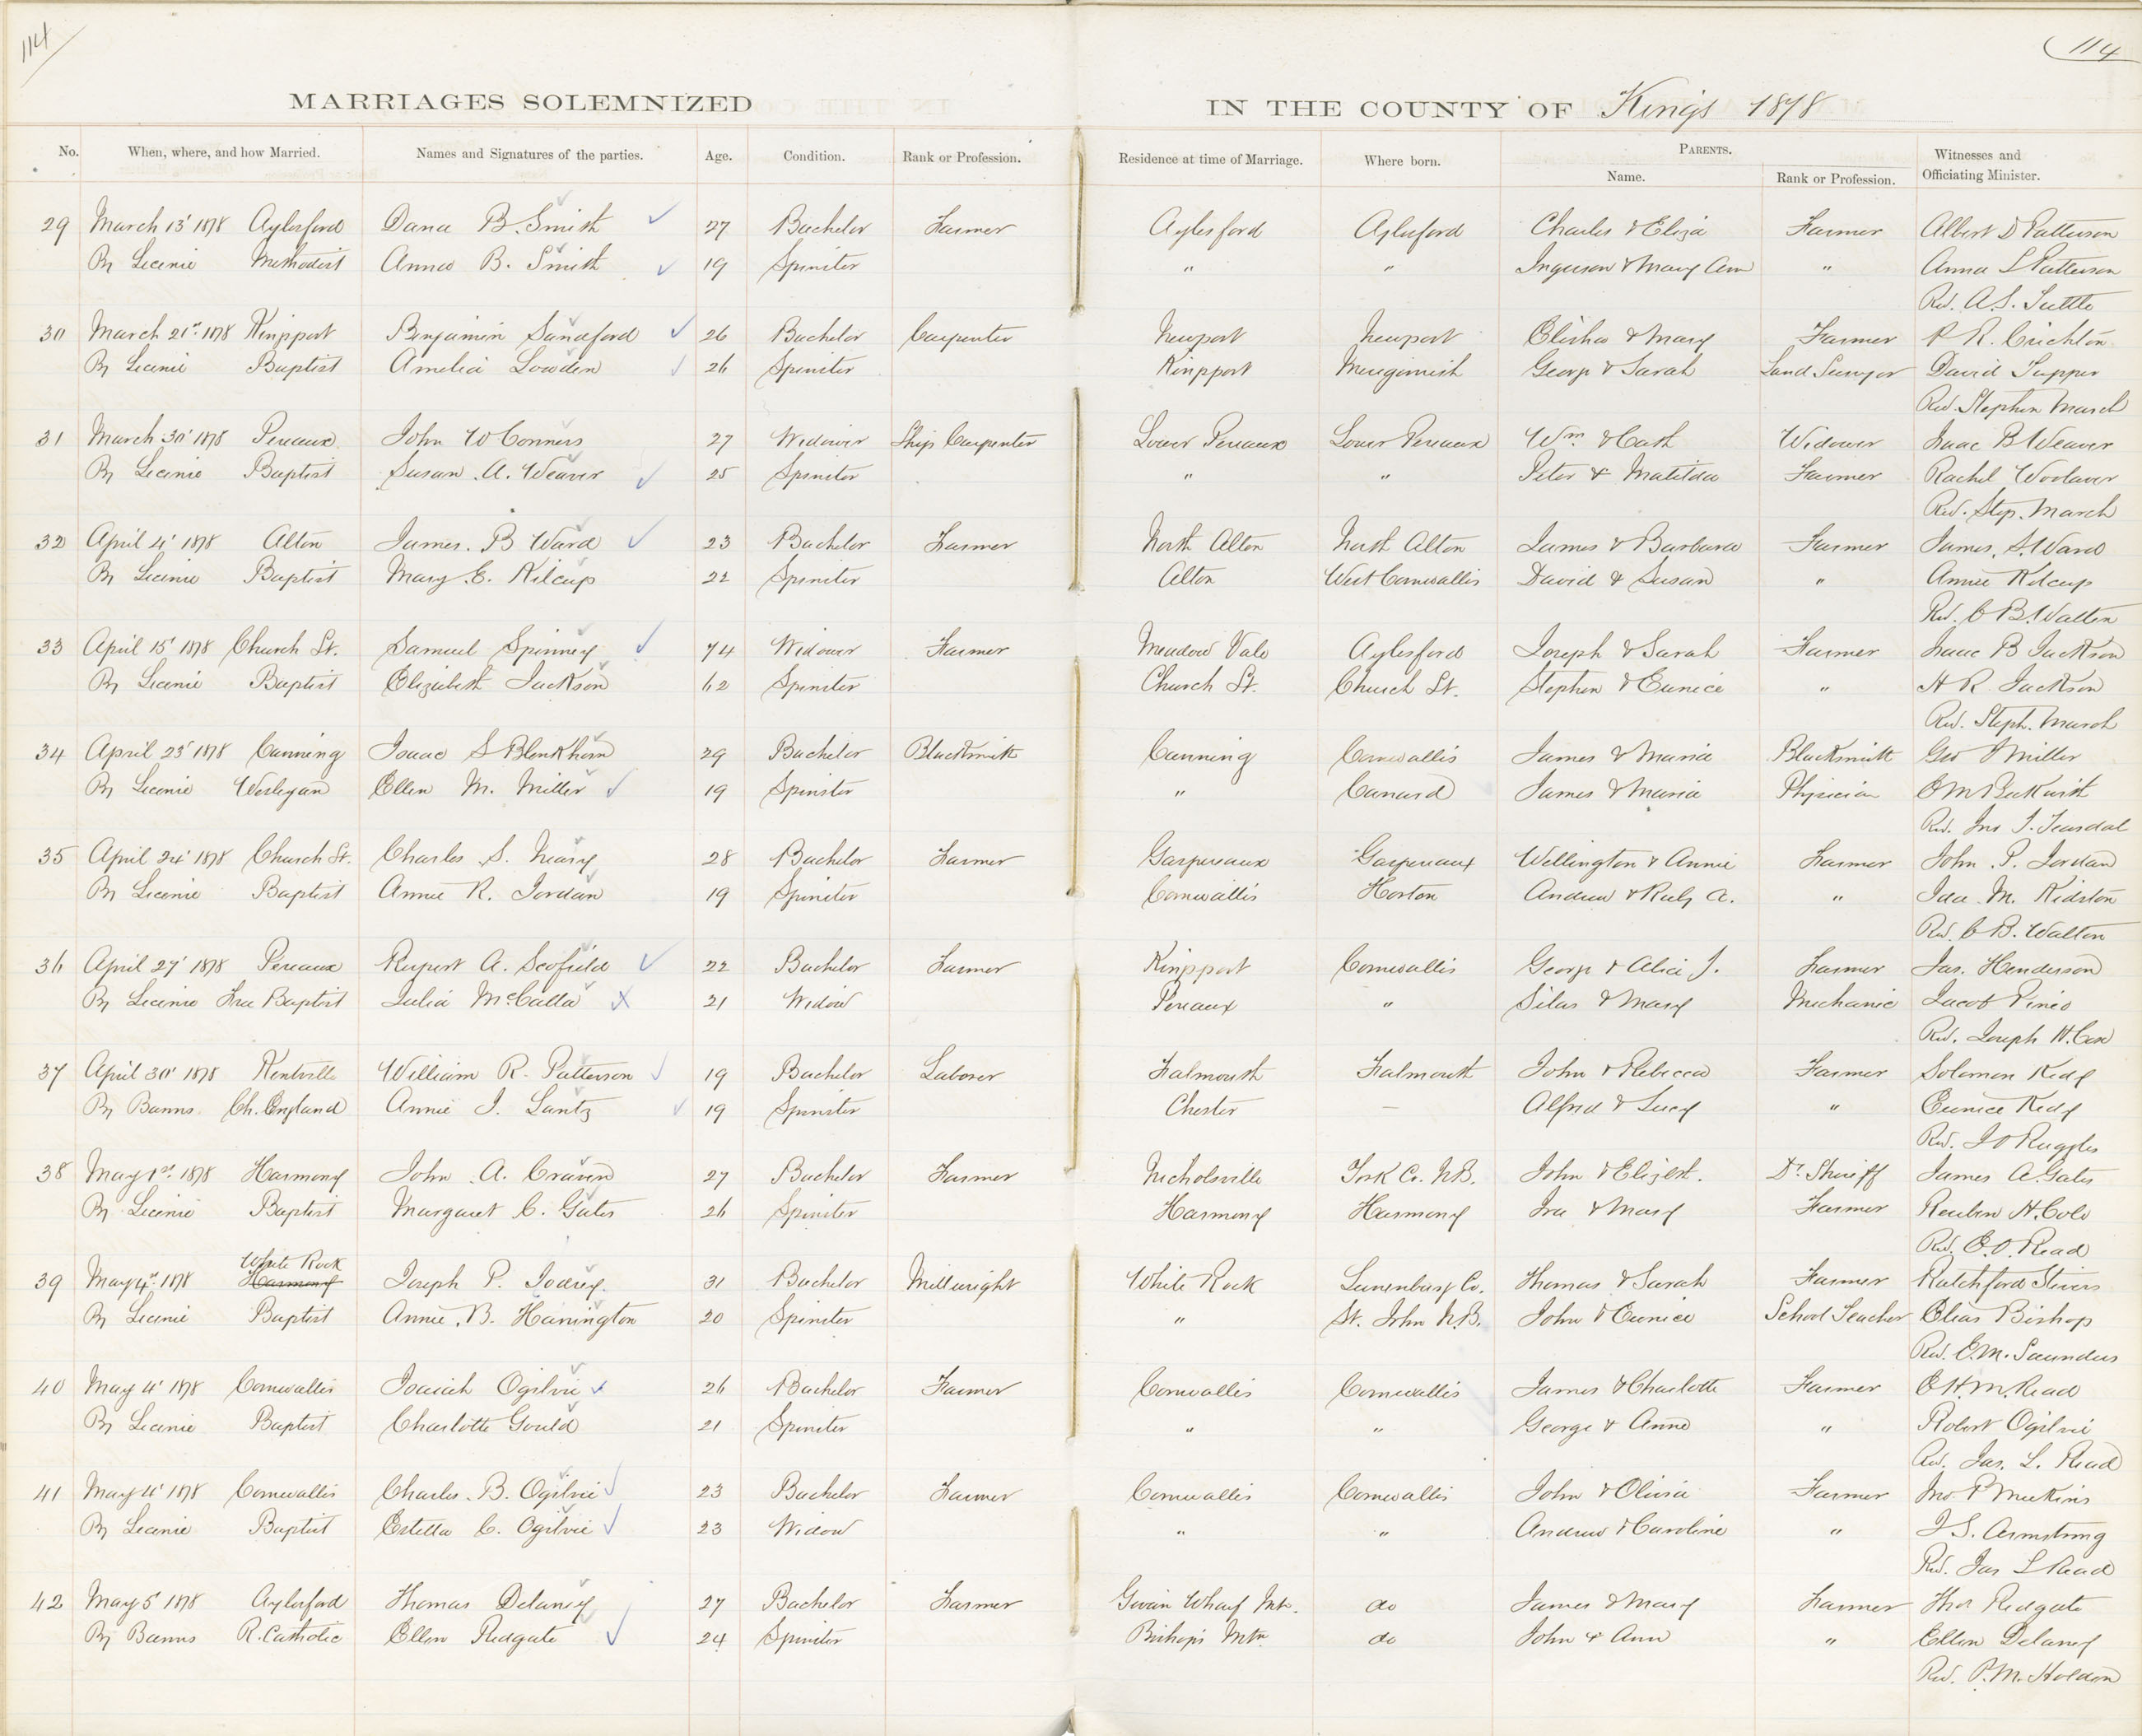 114
114
MARRIAGES SOLEMNIZED IN THE COUNTY OF Kings 1878
No. When, where, and how Married. Names and Signatures of the parties. Age. Condition. Rank or Profession. Residence at time of Marriage. Where born. PARENTS. Witnesses and
Name. Rank or Profession. Officiating Minister.
29 March 13' 1878 Aylesford Dana B. Smith 27 Bachelor Farmer Aylesford Aylesford Charles & Eliza Farmer Albert D Patterson
By Licence Methodist Anna B. Smith 19 Spinster " " Inguson & Mary Ann " Anna L Patterson
Rev. A.S. Tuttle
30 March 21st 1878 Kingsport Benjamin Sandford 26 Bachelor Carpenter Newport Newport Elisha & Mary Farmer P R. Crichton
By Licence Baptist Amelia Lowden 26 Spinster Kingsport Merigomish George & Sarah Land Surveyor David Tupper
Rev. Stephen March
31 March 30' 1878 Pereaux John W Conners 27 Widower Ship Carpenter Lower Pereaux Lower Pereaux Wm & Cath Widower Isaac B Weaver
By Licence Baptist Susan A. Weaver 25 Spinster " " Peter & Matilda Farmer Rachel Woolaver
Rev. Step. March
32 April 4' 1878 Alton James. B Ward 23 Bachelor Farmer North Alton North Alton James & Barbara Farmer James. S. Ward
By Licence Baptist Mary E. Kilcup 22 Spinster Alton West Cornwallis David & Susan " Annie Kilcup
Rev. C B. Walton
33 April 15' 1878 Church St. Samuel Spinney 74 Widower Farmer Meadow Vale Aylesford Joseph & Sarah Farmer Isaac B Jackson
By Licence Baptist Elizabeth Jackson 62 Spinster Church St. Church St. Stephen & Eunice " H R. Jackson
Rev. Steph. March
34 April 23' 1878 Canning Isaac S Blenkhorn 29 Bachelor Blacksmith Canning Cornwallis James & Maria Blacksmith Geo Miller
By Licence Wesleyan Ellen M. Miller 19 Spinster " Canard James & Maria Physician E M Beckwith
Rev. Jno J. Teasdal
35 April 24' 1878 Church St. Charles S. Neary 28 Bachelor Farmer Gaspereaux Gaspereaux Wellington & Annie Farmer John. P. Jordan
By Licence Baptist Annie R. Jordan 19 Spinster Cornwallis Horton Andrew & Ruby A. " Ida M. Kidston
Rev. C B. Walton
36 April 27' 1878 Pereaux Rupert A. Scofield 22 Bachelor Farmer Kingsport Cornwallis George & Alice J. Farmer Jas. Henderson
By Licence Free Baptist Julia McCalla 21 Widow Pereaux " Silas & Mary Mechanic Jacob Pineo
Rev. Joseph H. Cox
37 April 30' 1878 Kentville William R. Patterson 19 Bachelor Laborer Falmouth Falmouth John & Rebecca Farmer Solomon Kedy
By Banns Ch. England Annie J. Lantz 19 Spinster Chester — Alfred & Lucy " Eunice Kedy
Rev. J O Ruggles
38 May 1st 1878 Harmony John A. Craven 27 Bachelor Farmer Nicholsville York Co. N.B. John & Elizbt. Dr. Sheriff James A. Gates
By Licence Baptist Margaret C. Gates 26 Spinster Harmony Harmony Ira & Mary Farmer Reuben H. Cole
Rev. E.O. Read
White Rock
39 May 4" 1878 Harmony Joseph P. Jodrey. 31 Bachelor Millwright White Rock Lunenburg Co. Thomas & Sarah Farmer Ratchford Stivers
By Licence Baptist Annie. B. Hanington 20 Spinster " St. John N.B. John & Eunice School Teacher Elias Bishop
Rev. E.M. Saunders
40 May 4' 1878 Cornwallis Isaiah Ogilvie 26 Bachelor Farmer Cornwallis Cornwallis James & Charlotte Farmer E H.M. Read
By Licence Baptist Charlotte Gould 21 Spinster " " George & Anne " Robert Ogilvie
Rev. Jas. L. Read
41 May 4' 1878 Cornwallis Charles. B. Ogilvie 23 Bachelor Farmer Cornwallis Cornwallis John & Olivia Farmer Jno P Meekins
By Licence Baptist Estella C. Ogilvie 23 Widow " " Andrew & Caroline " J S. Armstrong
Rev. Jas L Read
42 May 5' 1878 Aylesford Thomas Delaney 27 Bachelor Farmer Givan Wharf Mt. do James & Mary Farmer Thos Redgate
By Banns R. Catholic Ellen Redgate 24 Spinster Bishop's Mtn do John & Ann " Ellen Delaney
Rev. P.M. Holden